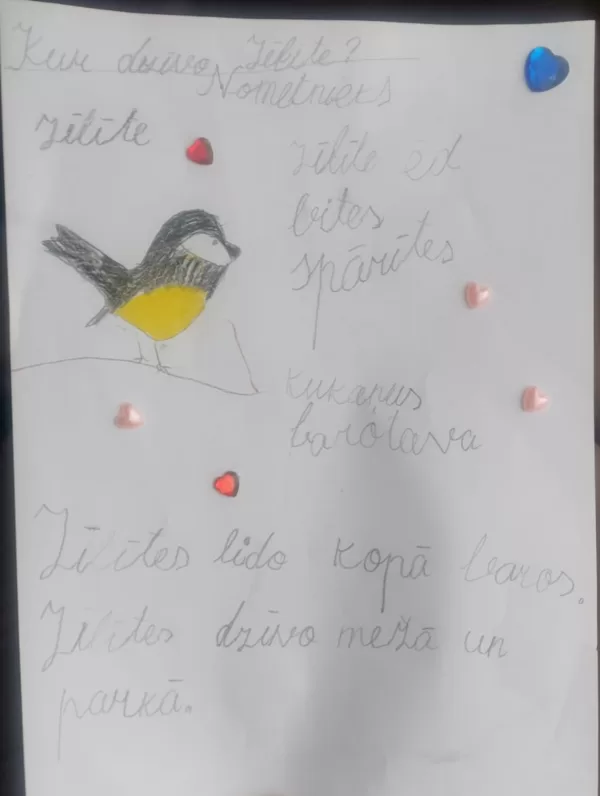 Kur dzīvo Zīlīte?
Nometnieks
Zīlīte
Zīlīte ēd
bites
spārītes
kukaņus
barotava
Zīlītes lido kopā baros.
Zīlītes dzīvo mežā un
parkā.